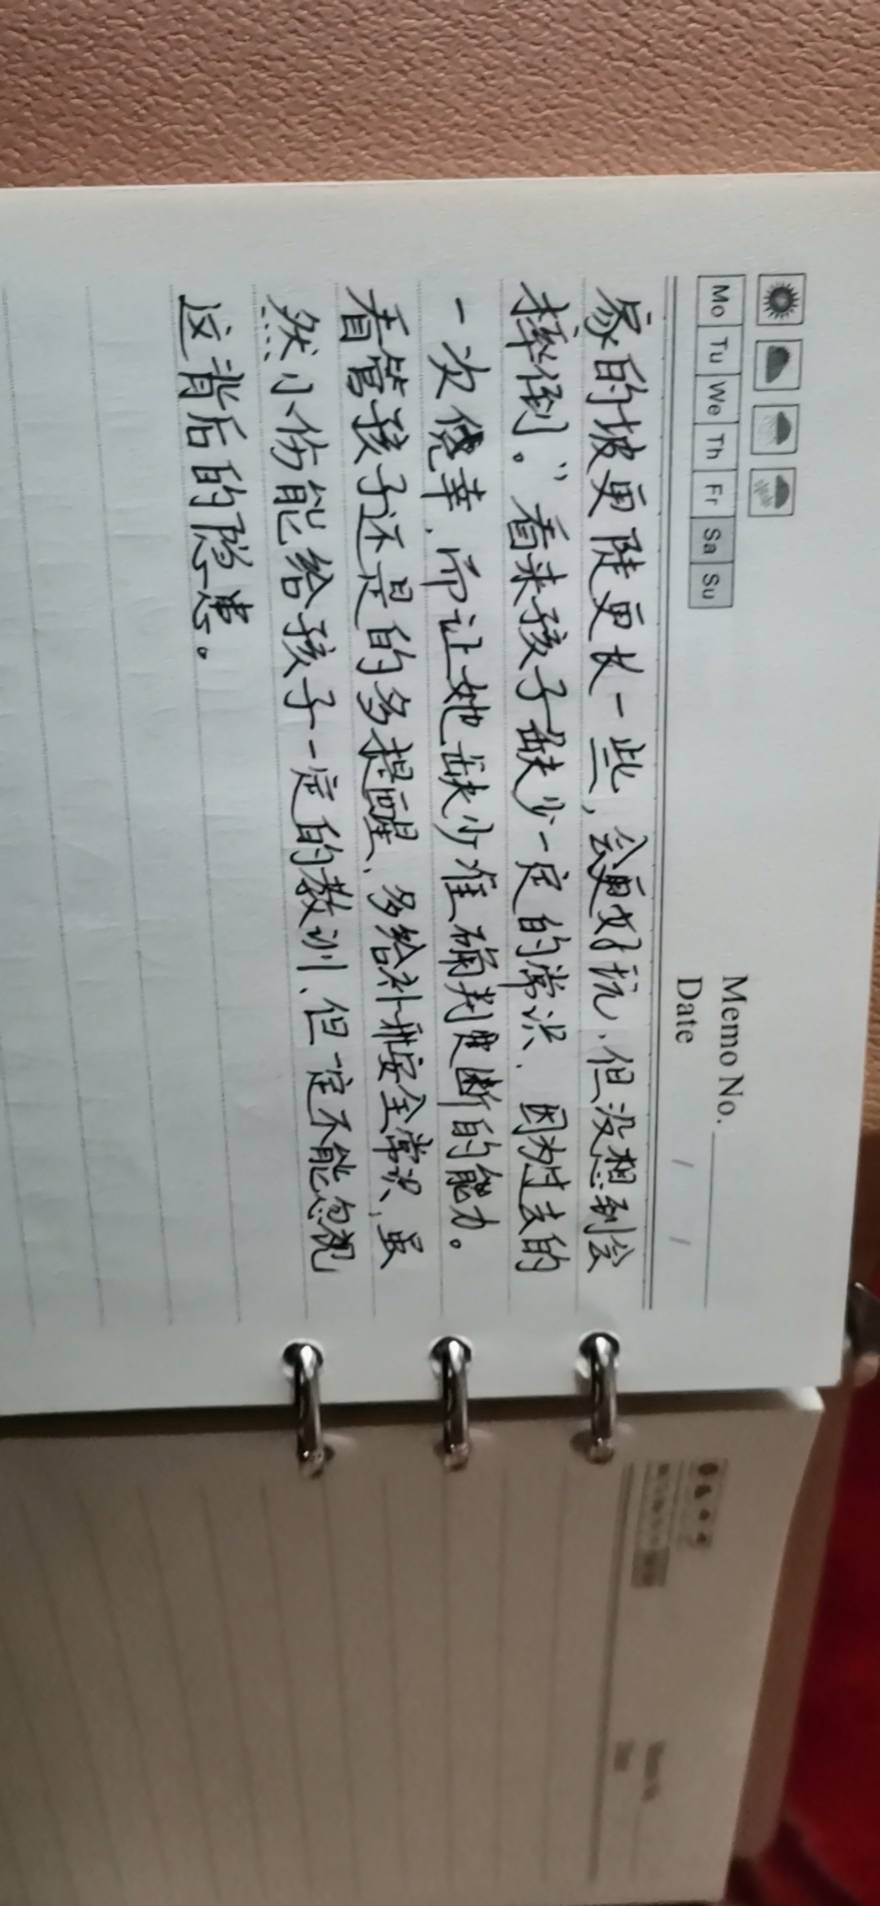 Memo No.
Mo Tu We Th Fr Sa Su
Date / /
家的坡更陡更长一些，会更好玩，但没想到会
摔倒。”看来孩子缺少一定的常识，因为过去的
一次侥幸，而让她缺少准确判断的能力。
看管孩子还是的多提醒，多给补充安全常识，虽
然小伤能给孩子一定的教训，但一定不能忽视
这背后的隐患。